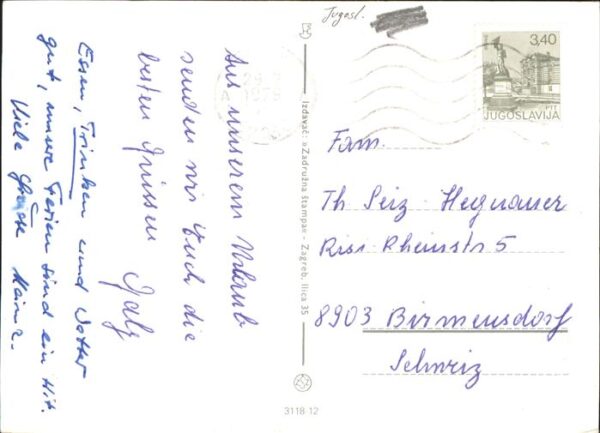 Jugosl.
3,40
PTT
JUGOSLAVIJA
Aus unserem Urlaub
senden wir Euch die
besten Grüssen
Essen, Trinken und Wetter
gut, unsere Ferien sind ein Hit.
Viele Grüsse
Izdavač: »Zadružna štampa« - Zagreb, Ilica 35
Fam.
Th Seiz-Hegnauer
Rheinstr 5
8903 Birmensdorf
Schweiz
3118 12